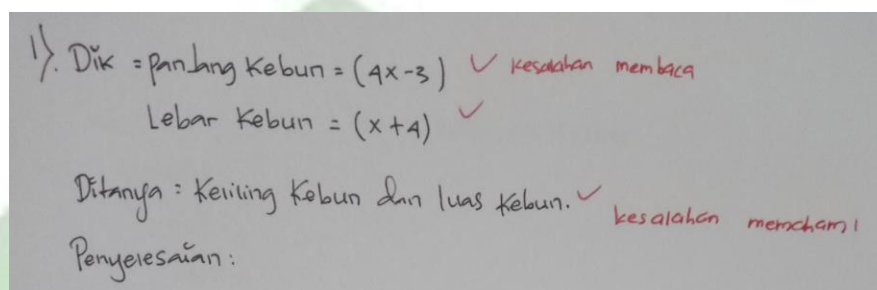 1). Dik = Panjang Kebun = (4x-3) ✓ kesalahan membaca
Lebar Kebun = (x+4) ✓
Ditanya : Keliling Kebun dan luas Kebun. ✓ kesalahan memahami
Penyelesaian :